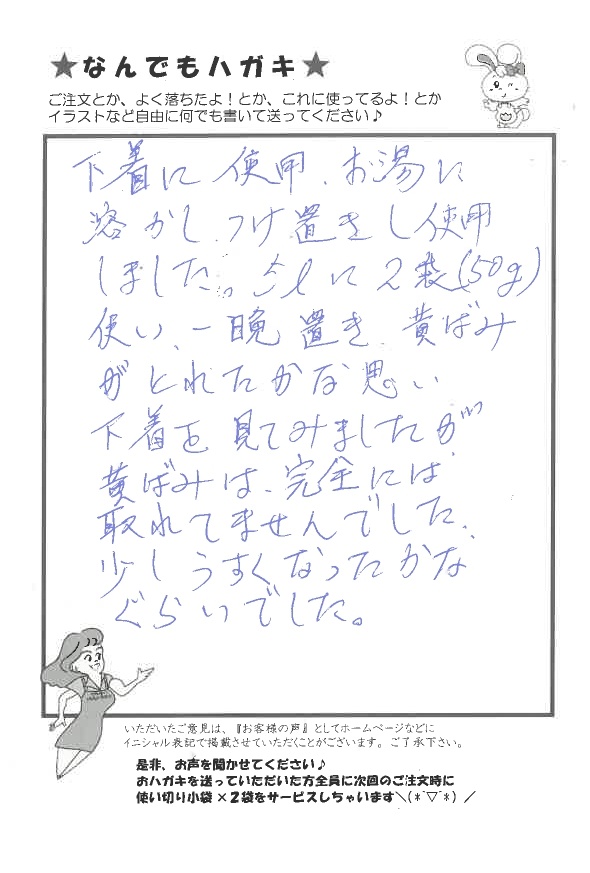 ★なんでもハガキ★
ご注文とか、よく落ちたよ！とか、これに使ってるよ！とか
イラストなど自由に何でも書いて送ってください♪
下着に使用、お湯に
溶かし、つけ置きし使用
しました。5lに2袋(50g)
使い、一晩置き、黄ばみ
がとれたかな思い
下着を見てみましたが
黄ばみは、完全には
取れてませんでした、
少しうすくなったかな
ぐらいでした。
いただいたご意見は、『お客様の声』としてホームページなどに
イニシャル表記で掲載させていただくことがございます。ご了承下さい。
是非、お声を聞かせてください♪
おハガキを送っていただいた方全員に次回のご注文時に
使い切り小袋×2袋をサービスしちゃいます＼(*´▽`*)／